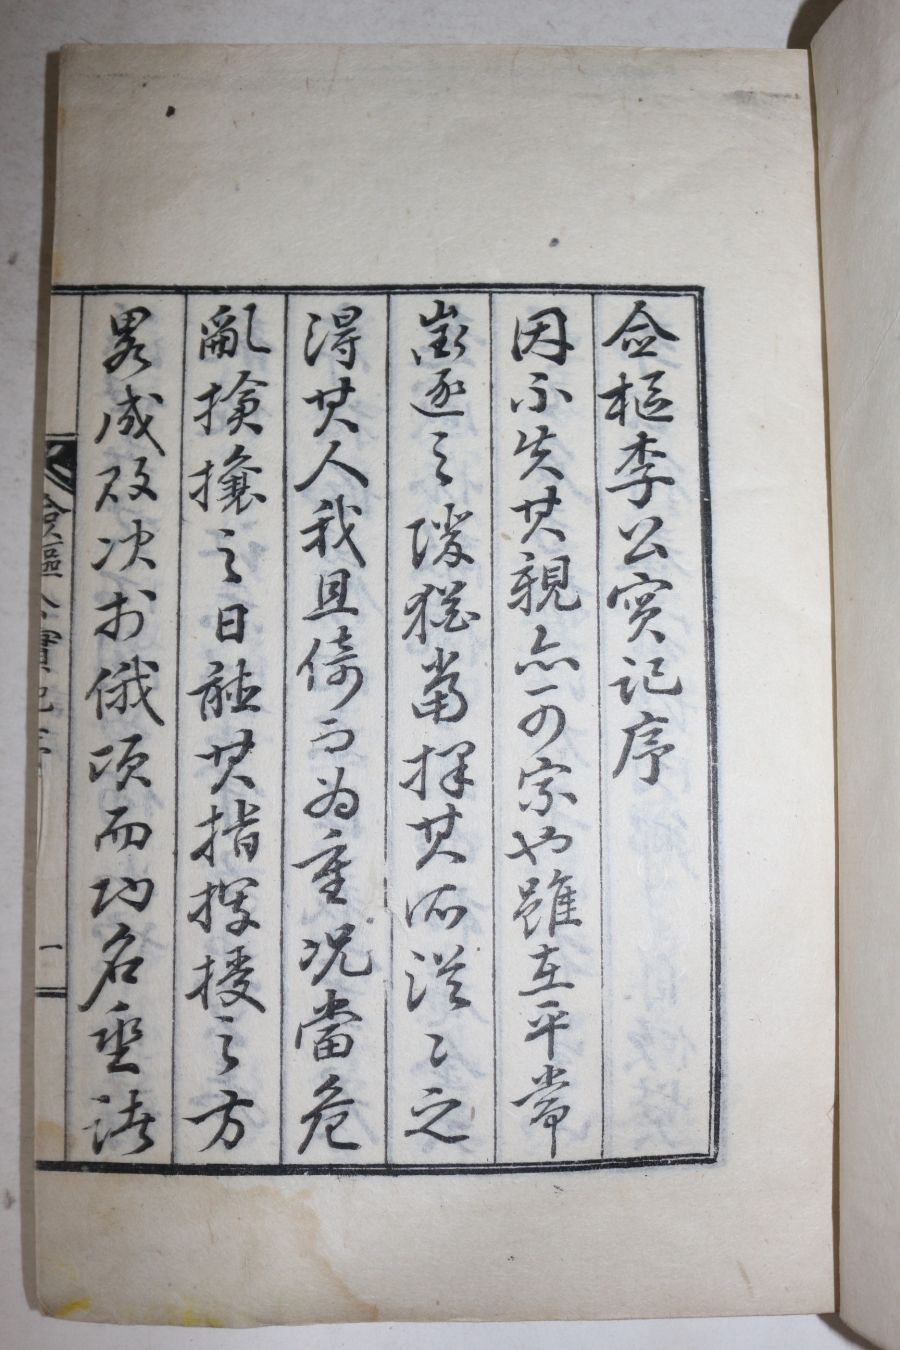 僉樞李公實記序
因不失其親亦可宗也雖在平常
徵逐之際猶當擇其所從〻之
得其人我且倚而為重況當危
亂搶攘之日聽其指揮授之方
畧成敗決於俄頃而功名垂諸
僉樞公實記序
一